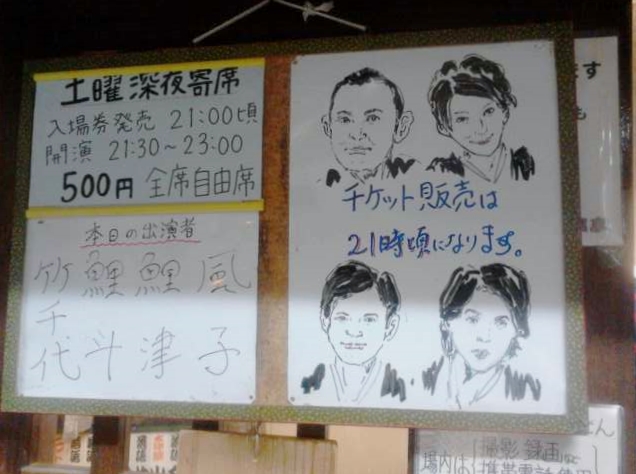 土曜深夜寄席
入場券発売 21:00頃
開演 21:30~23:00
500円 全席自由席
本日の出演者
風子
鯉津
鯉斗
竹千代
チケット販売は
21時頃になります。
場内は
撮影 録画など
携帯電